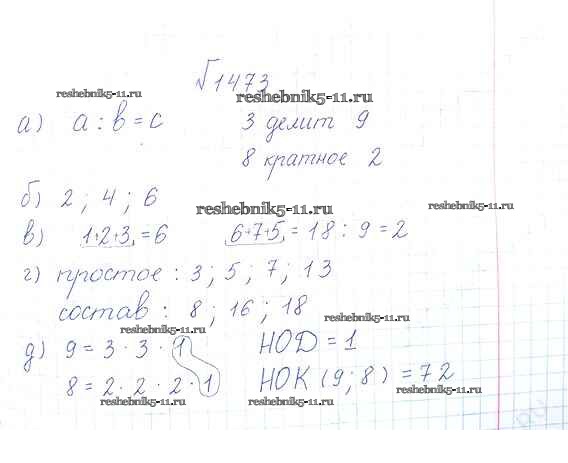 √1473
reshebnik5-11.ru
reshebnik5-11.ru
а) a : b = c 3 делит 9
8 кратное 2
б) 2 ; 4 ; 6
reshebnik5-11.ru
reshebnik5-11.ru
в) 1+2+3 = 6 6+7+5 = 18 : 9 = 2
г) простое : 3 ; 5 ; 7 ; 13
состав : 8 ; 16 ; 18
reshebnik5-11.ru
reshebnik5-11.ru
д) 9 = 3 · 3 · 1 НОД = 1
8 = 2 · 2 · 2 · 1 НОК (9 ; 8) = 72
reshebnik5-11.ru
reshebnik5-11.ru
reshebnik5-11.ru